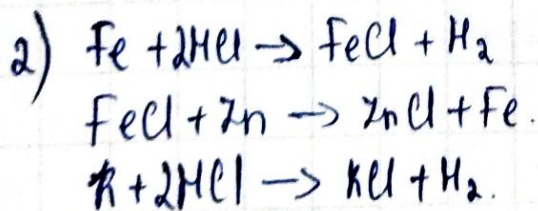 2) Fe + 2HCl → FeCl + H₂
FeCl + Zn → ZnCl + Fe.
K + 2HCl → KCl + H₂.